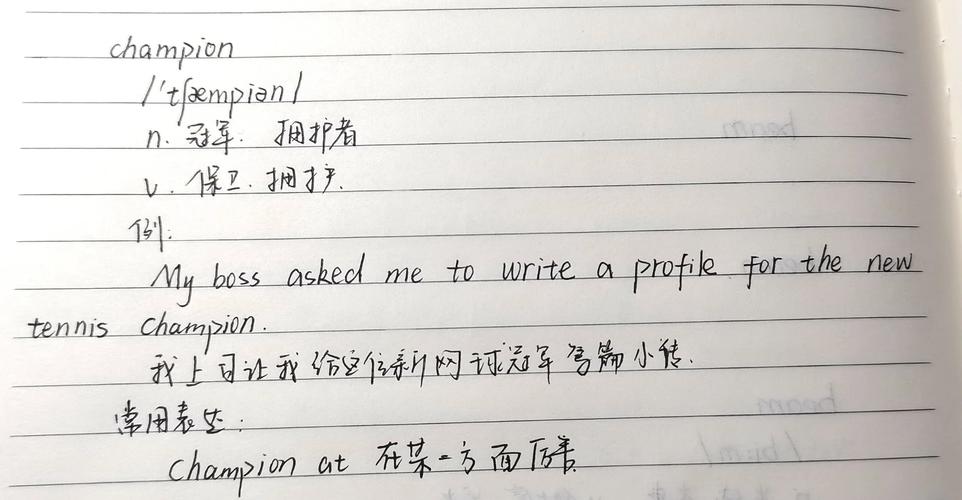 champion
/'tʃæmpiən/
n. 冠军. 拥护者
v. 保卫. 拥护.
例:
My boss asked me to write a profile for the new
tennis champion.
我上司让我给这位新网球冠军写篇小传.
常用表达:
champion at 在某一方面厉害
beam
beam
/biːm/